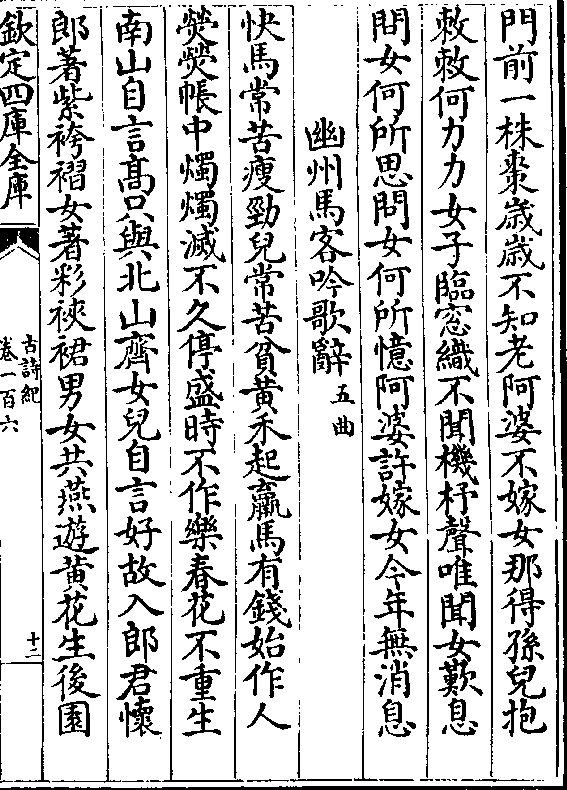 門前一株棗歳歳不知老阿婆不嫁女那得孫兒抱
敕敕何力力女子臨窓織不聞機杼聲唯聞女歎息
問女何所思問女何所憶阿婆許嫁女今年無消息
幽州馬客吟歌辭五曲
快馬常苦瘦勁兒常苦貧黄禾起羸馬有錢始作人
熒熒帳中燭燭滅不久停盛時不作樂春花不重生
南山自言髙只與北山齊女兒自言好故入郎君懷
郎著紫袴褶女著彩裌裙男女共燕遊黄花生後園
欽定四庫全書
古詩紀
卷一百六
十二